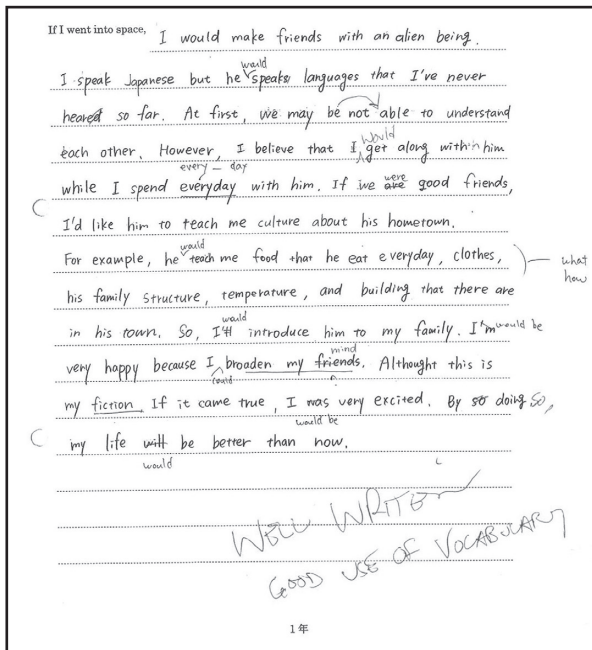 If I went into space, I would make friends with an alien being.
would
I speak Japanese but he speaks languages that I've never
heared so far. At first, we may be not able to understand
would
each other. However, I believe that I get along with him
every-day
while I spend everyday with him. If we are were good friends,
I'd like him to teach me culture about his hometown.
would
For example, he teach me food that he eat everyday, clothes,
what
how
his family structure, temperature, and building that there are
would
in his town. So, I'll introduce him to my family. I'm would be
mind
very happy because I broaden my friends. Althought this is
could
my fiction. If it came true, I was very excited. By so doing so,
would be
my life will be better than now.
would
WELL WRITEN
GOOD USE OF VOCABULARY
1年